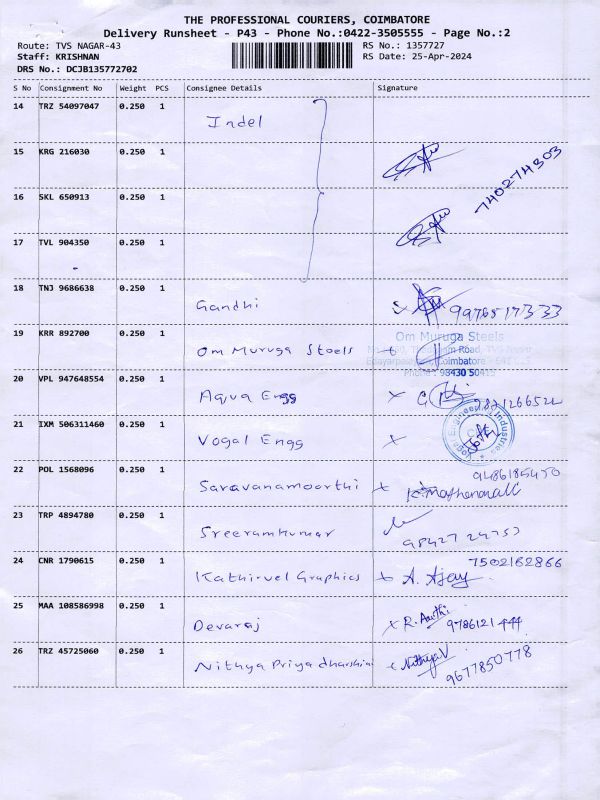 THE PROFESSIONAL COURIERS, COIMBATORE
Delivery Runsheet - P43 - Phone No.:0422-3505555 - Page No.:2
Route: TVS NAGAR-43 RS No.: 1357727
Staff: KRISHNAN RS Date: 25-Apr-2024
DRS No.: DCJB135772702
S No Consignment No Weight PCS Consignee Details Signature
14 TRZ 54097047 0.250 1 Indel
15 KRG 216030 0.250 1
740274303
16 SKL 650913 0.250 1
17 TVL 904350 0.250 1
18 TNJ 9686638 0.250 1 Gandhi
19 KRR 892700 0.250 1 Om Muruga Steels
Om Muruga Steels
Coimbatore
Phone: 98430 50415
20 VPL 947648554 0.250 1 Aqua Engg
21 IXM 506311460 0.250 1 Vogal Engg
22 POL 1568096 0.250 1 Saravanamoorthi 9486185450
23 TRP 4894780 0.250 1 Sreeramkumar
24 CNR 1790615 0.250 1 Kathirvel Graphics A. Ajay 7502162866
25 MAA 108586998 0.250 1 Devaraj R. Aarthi 9786121444
26 TRZ 45725060 0.250 1 Nithya Priyadharshini Nithya V 9677850778